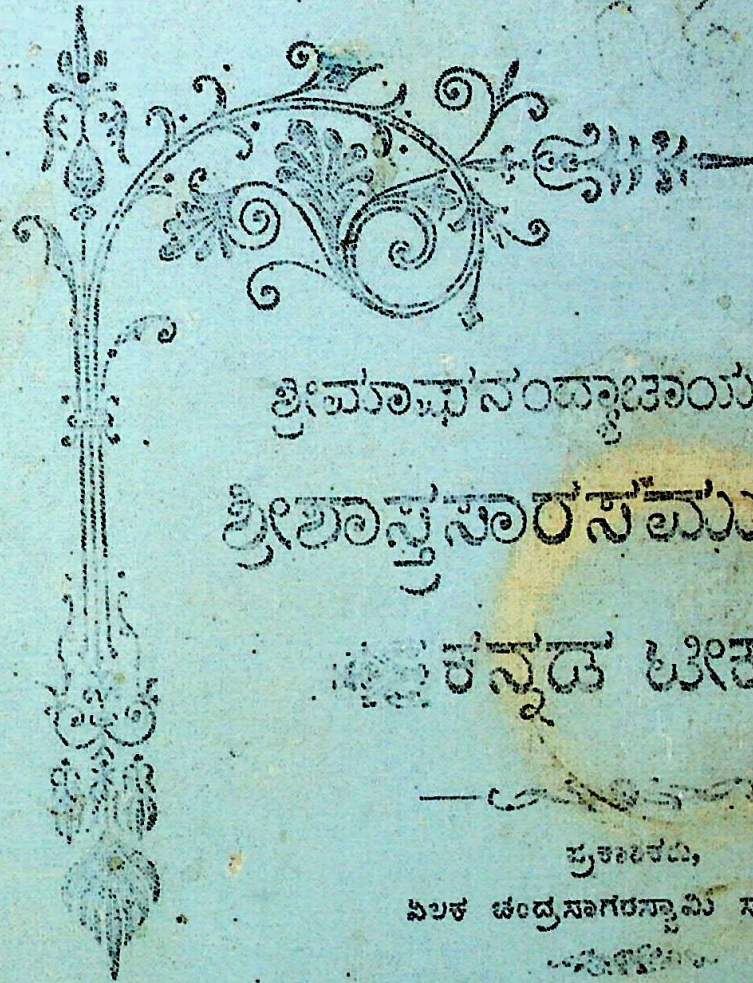 ಶ್ರೀಮಾಘನಂದ್ಯಾಚಾರ್ಯ
ಶ್ರೀಶಾಸ್ತ್ರಸಾರಸಮು
ಕನ್ನಡ ಟೀಕ
ಪ್ರಕಾಶಕರು,
ಏಲಕ ಚಂದ್ರಸಾಗರಸ್ವಾಮಿ